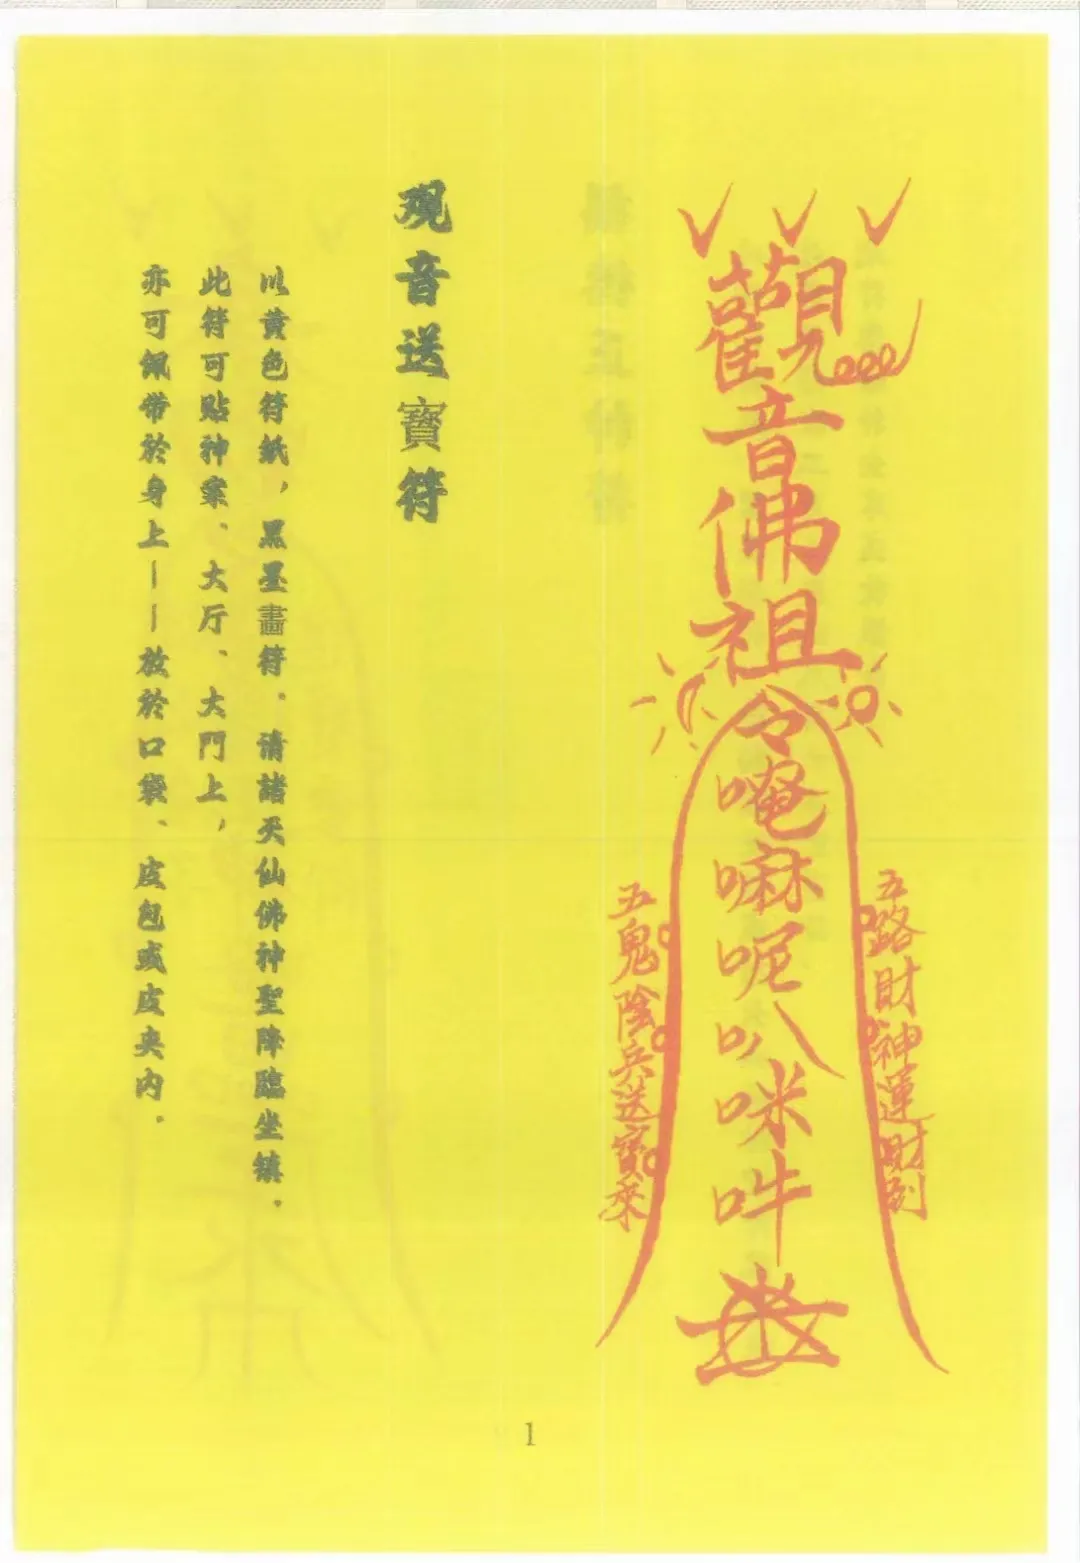 觀音佛祖
令唵嘛呢叭咪吽
五路財神運財到
五鬼陰兵送寶來
观音送寶符
以黄色符紙，黑墨畫符．请諸天仙佛神聖降臨坐镇．
此符可贴神案、大厅、大門上，
亦可佩带於身上——放於口袋、皮包或皮夹内．
1